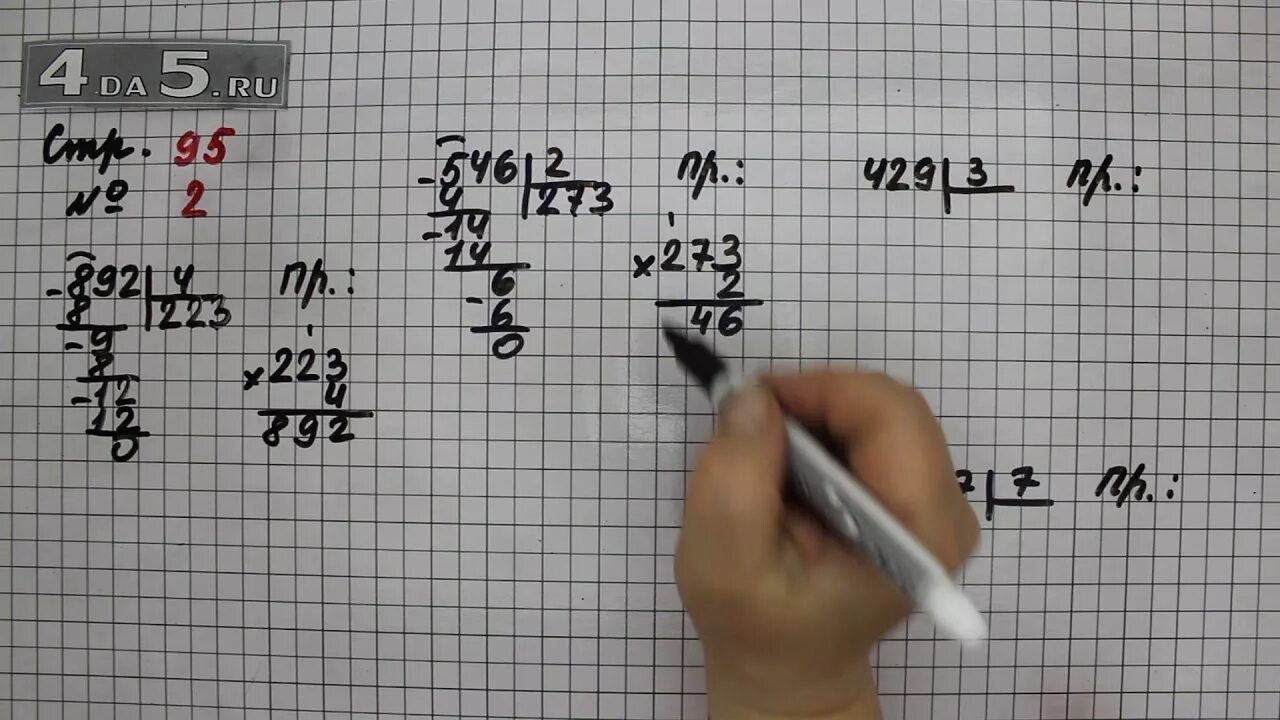 4DA5.RU
Стр. 95
№ 2
-892 | 4
8 | 223
-9
8
-12
12
0
пр.:
1
×223
4
892
-546 | 2
4 | 273
-14
14
6
-6
0
пр.:
1
×273
2
46
429 | 3
пр.:
7 | 7
пр.: